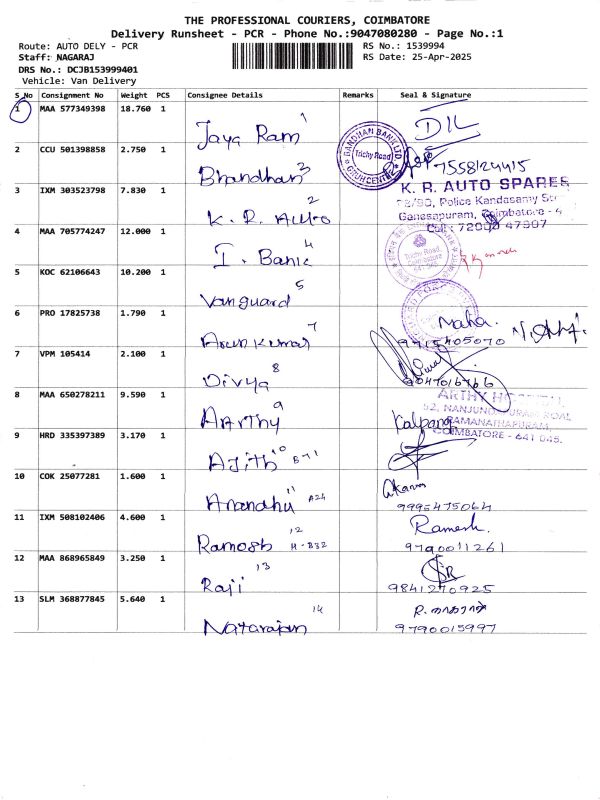 THE PROFESSIONAL COURIERS, COIMBATORE
Delivery Runsheet - PCR - Phone No.:9047080280 - Page No.:1
Route: AUTO DELY - PCR
RS No.: 1539994
Staff: NAGARAJ
RS Date: 25-Apr-2025
DRS No.: DCJB153999401
Vehicle: Van Delivery
S_No Consignment No Weight PCS Consignee Details Remarks Seal & Signature
1 MAA 577349398 18.760 1
Jaya Ram 1 DIL
2 CCU 501398858 2.750 1
Bhandhan 3 7558124415
BANDHAN BANK LTD.
Trichy Road
3 IXM 303523798 7.830 1
K. R. Auto 2
K. R. AUTO SPARES
Police Kandasamy
Ganesapuram, Coimbatore - 4
Cell : 72000 47907
4 MAA 705774247 12.000 1
I. Bank 4
Trichy Road,
Coimbatore
5 KOC 62106643 10.200 1
Vanguard 5
6 PRO 17825738 1.790 1
Arun Kumar 7 Maha.
9715405070
7 VPM 105414 2.100 1
Divya 8
9047016766
8 MAA 650278211 9.590 1
AARTHY 9 Kalpana
ARTHY HOSPITAL
52, NANJUNDAPURAM ROAD,
RAMANATHAPURAM,
COIMBATORE - 641 045.
9 HRD 335397389 3.170 1
Ajith 10 B-71
10 COK 25077281 1.600 1
Anandhu 11 A24 Akarsh
9995475064
11 IXM 508102406 4.600 1
Ramesh 12 H-B32 Ramesh.
9790011261
12 MAA 868965849 3.250 1
Raji 13
9841270925
13 SLM 368877845 5.640 1
Natarajan 14
9790015997